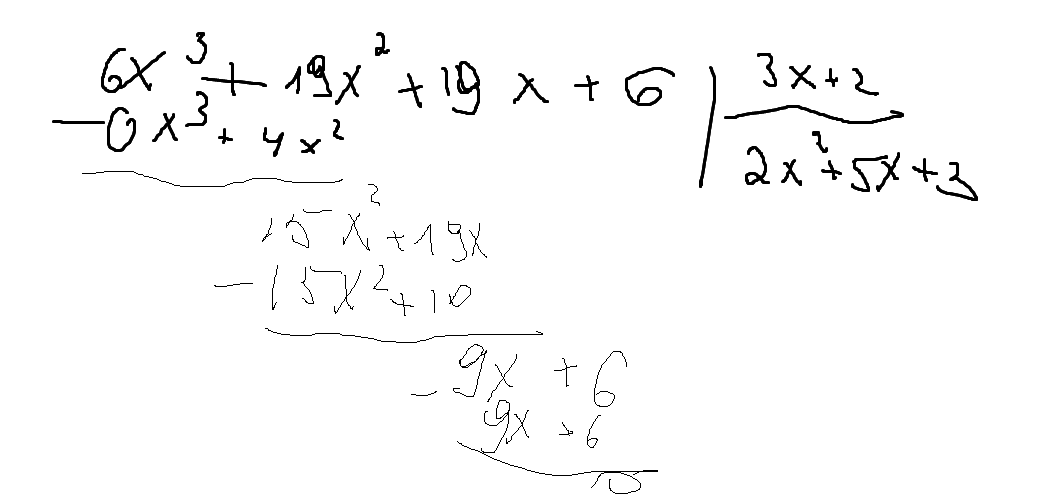 6x³ + 19x² + 19x + 6 | 3x+2
-0x³ + 4x² | 2x²+5x+3
15x² + 19x
-15x² + 10
-9x + 6
9x + 6
0